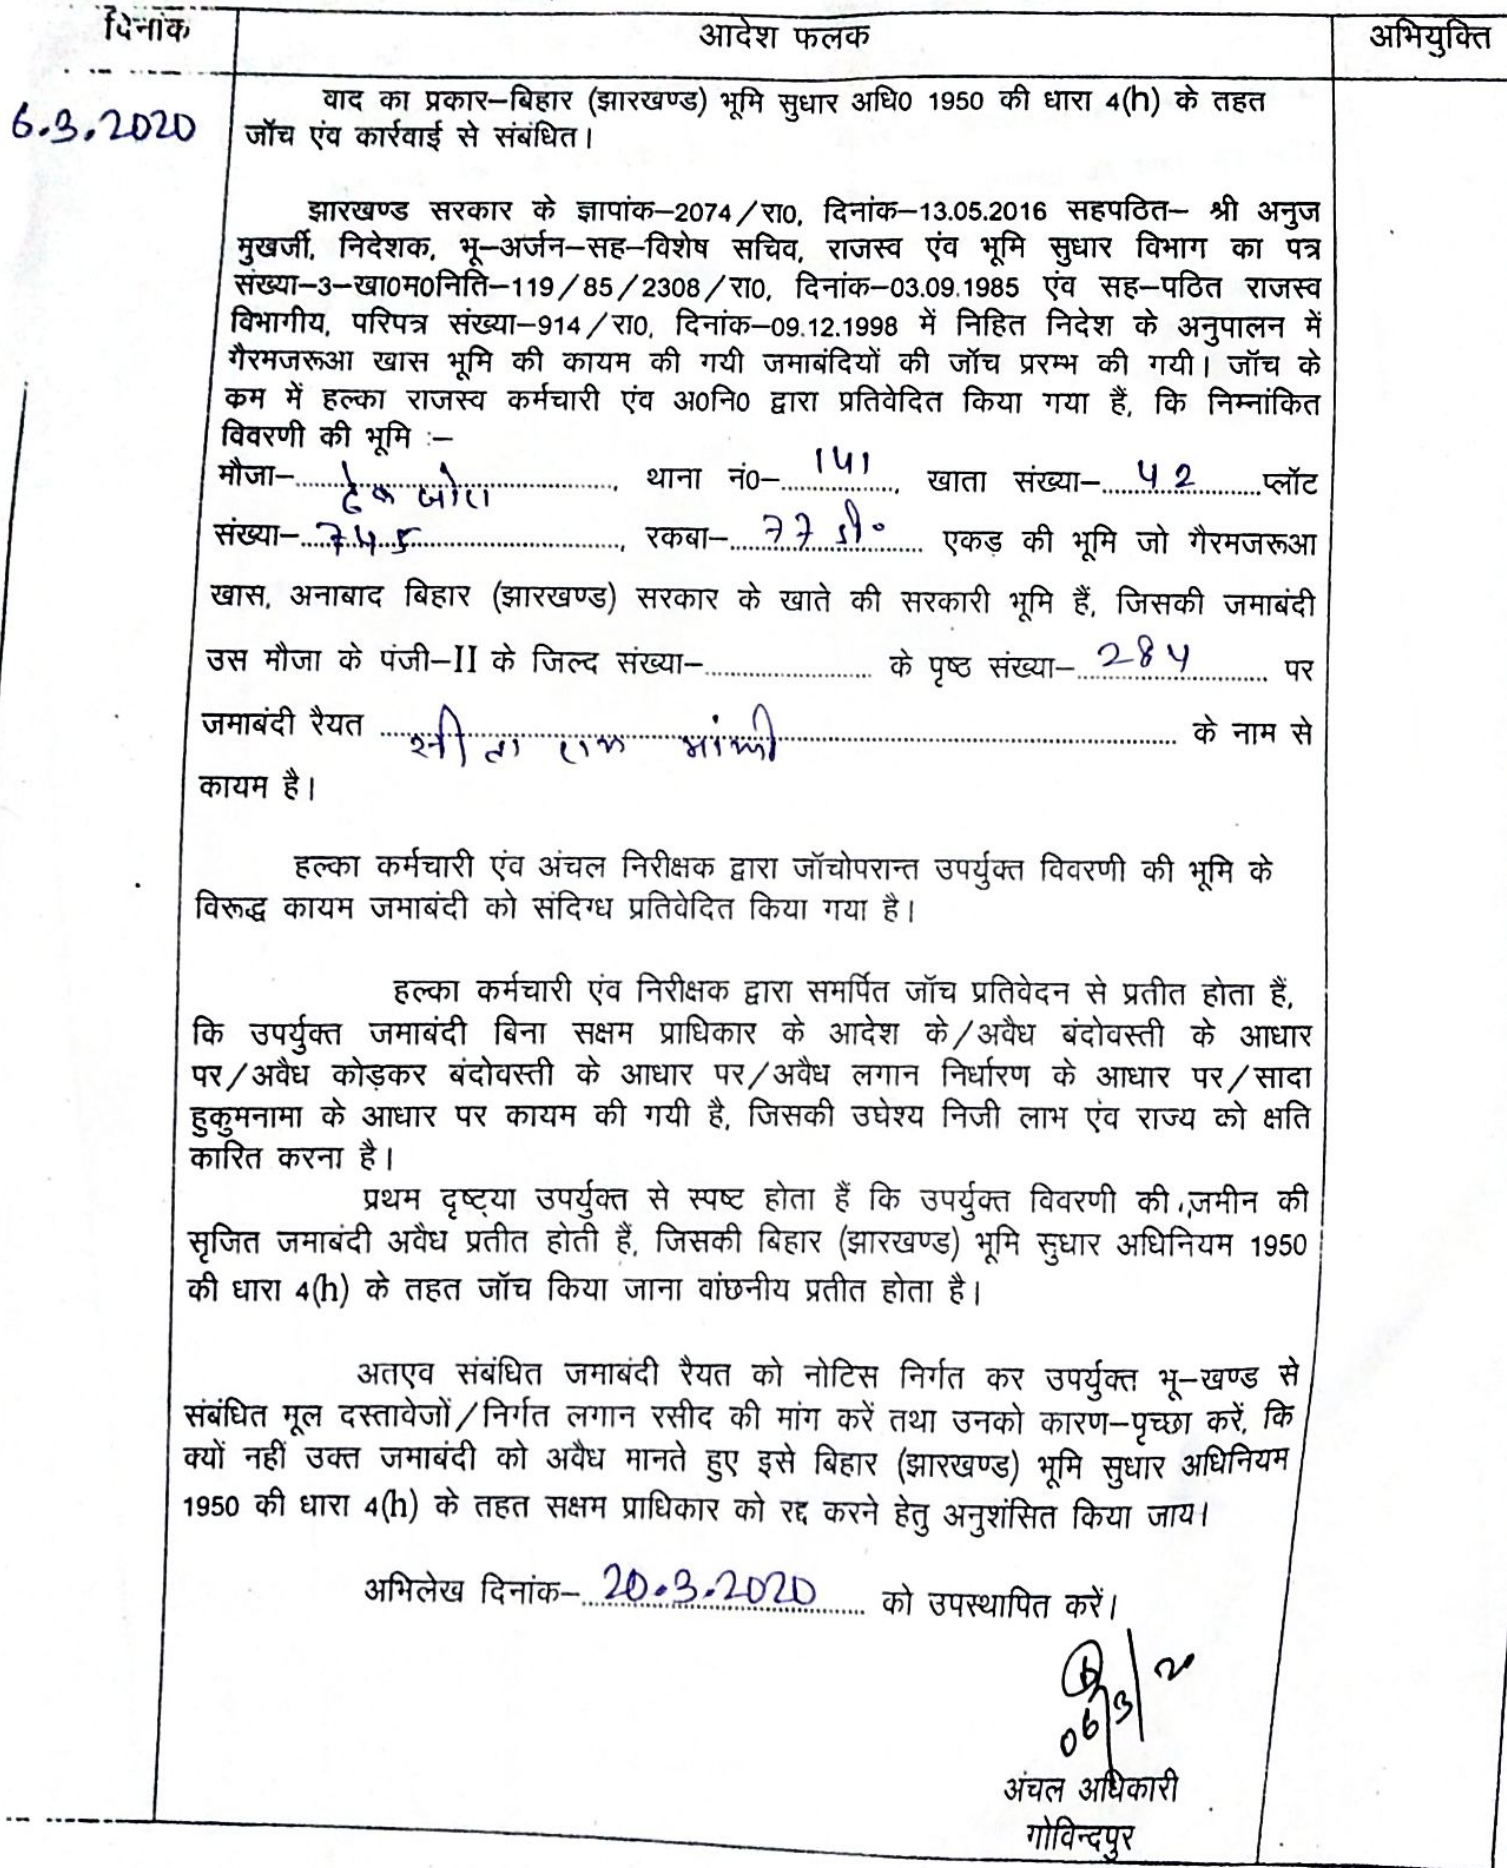 दिनांक
आदेश फलक
अभियुक्ति
6.3.2020
वाद का प्रकार–बिहार (झारखण्ड) भूमि सुधार अधि0 1950 की धारा 4(h) के तहत
जॉच एंव कार्रवाई से संबंधित।
झारखण्ड सरकार के ज्ञापांक–2074/रा0, दिनांक–13.05.2016 सहपठित– श्री अनुज
मुखर्जी, निदेशक, भू–अर्जन–सह–विशेष सचिव, राजस्व एंव भूमि सुधार विभाग का पत्र
संख्या–3–खा0म0निति–119/85/2308/रा0, दिनांक–03.09.1985 एंव सह–पठित राजस्व
विभागीय, परिपत्र संख्या–914/रा0, दिनांक–09.12.1998 में निहित निदेश के अनुपालन में
गैरमजरूआ खास भूमि की कायम की गयी जमाबंदियों की जॉच प्ररम्भ की गयी। जॉच के
कम में हल्का राजस्व कर्मचारी एंव अ0नि0 द्वारा प्रतिवेदित किया गया हैं, कि निम्नांकित
विवरणी की भूमि :–
मौजा–............, थाना नं0– 141, खाता संख्या– 42 प्लॉट
संख्या– 745, रकबा– 77 डी० एकड़ की भूमि जो गैरमजरूआ
खास, अनाबाद बिहार (झारखण्ड) सरकार के खाते की सरकारी भूमि हैं, जिसकी जमाबंदी
उस मौजा के पंजी–II के जिल्द संख्या–............ के पृष्ठ संख्या– 284 पर
जमाबंदी रैयत सीता राम मांझी के नाम से
कायम है।
हल्का कर्मचारी एंव अंचल निरीक्षक द्वारा जॉचोपरान्त उपर्युक्त विवरणी की भूमि के
विरूद्ध कायम जमाबंदी को संदिग्ध प्रतिवेदित किया गया है।
हल्का कर्मचारी एंव निरीक्षक द्वारा समर्पित जॉच प्रतिवेदन से प्रतीत होता हैं,
कि उपर्युक्त जमाबंदी बिना सक्षम प्राधिकार के आदेश के/अवैध बंदोवस्ती के आधार
पर/अवैध कोड़कर बंदोवस्ती के आधार पर/अवैध लगान निर्धारण के आधार पर/सादा
हुकुमनामा के आधार पर कायम की गयी है, जिसकी उघेश्य निजी लाभ एंव राज्य को क्षति
कारित करना है।
प्रथम दृष्ट्या उपर्युक्त से स्पष्ट होता हैं कि उपर्युक्त विवरणी की जमीन की
सृजित जमाबंदी अवैध प्रतीत होती हैं, जिसकी बिहार (झारखण्ड) भूमि सुधार अधिनियम 1950
की धारा 4(h) के तहत जॉच किया जाना वांछनीय प्रतीत होता है।
अतएव संबंधित जमाबंदी रैयत को नोटिस निर्गत कर उपर्युक्त भू–खण्ड से
संबंधित मूल दस्तावेजों/निर्गत लगान रसीद की मांग करें तथा उनको कारण–पृच्छा करें, कि
क्यों नहीं उक्त जमाबंदी को अवैध मानते हुए इसे बिहार (झारखण्ड) भूमि सुधार अधिनियम
1950 की धारा 4(h) के तहत सक्षम प्राधिकार को रद्द करने हेतु अनुशंसित किया जाय।
अभिलेख दिनांक– 20.3.2020 को उपस्थापित करें।
06/3/20
अंचल अधिकारी
गोविन्दपुर